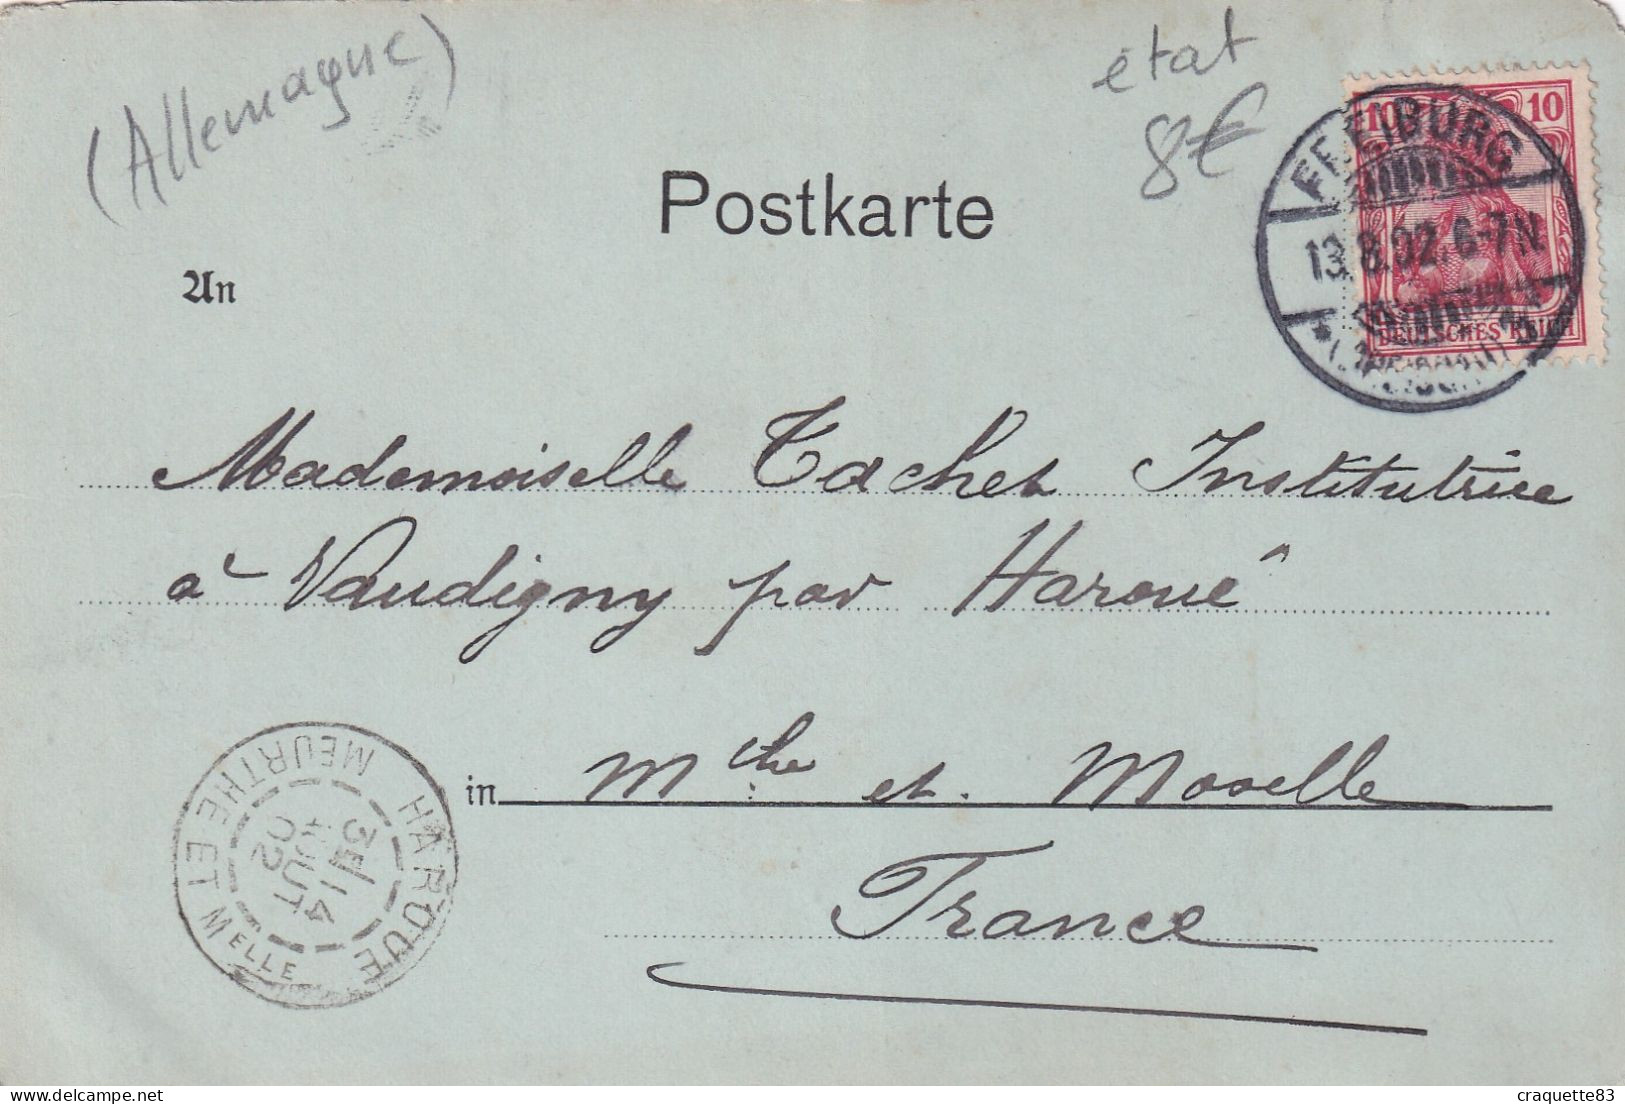 (Allemagne)
état
8€
Postkarte
An
10 10
FREIBURG
13.8.02.6-7N.
DEUTSCHES REICH
Mademoiselle Tachet Institutrice
à Vaudigny par Haroué
in Mthe et Moselle
France
HAROUÉ
3E
14
AOUT
02
MEURTHE ET MELLE
craquette83